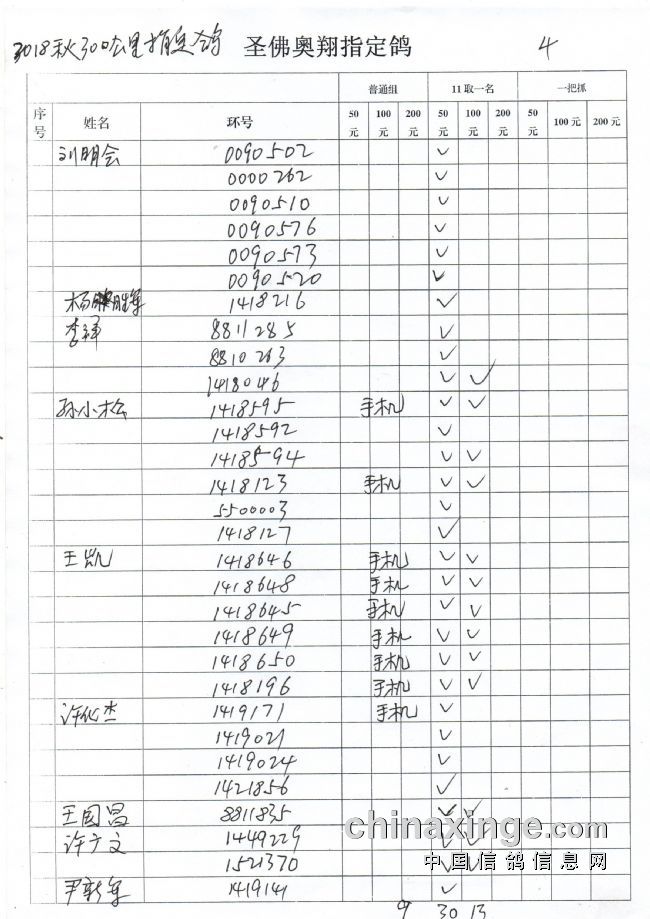 2018秋300公里指定鸽 圣佛奥翔指定鸽 4
普通组 11取一名 一把抓
序号 姓名 环号 50元 100元 200元 50元 100元 200元 50元 100元 200元
刘明会 0090502 ✓
0000262 ✓
0090510 ✓
0090576 ✓
0090573 ✓
0090520 ✓
杨胜军 1418216 ✓
李祥 8811285 ✓
8810263 ✓
1418046 ✓ ✓
孙小松 1418595 手机 ✓ ✓
1418592 ✓
1418594 ✓ ✓
1418123 手机 ✓ ✓
5500003 ✓
1418127 ✓
王凯 1418646 手机 ✓ ✓
1418648 手机 ✓ ✓
1418645 手机 ✓ ✓
1418649 手机 ✓ ✓
1418650 手机 ✓ ✓
1418196 手机 ✓ ✓
许化杰 1419171 手机 ✓
1419021 ✓
1419024 ✓
1421856 ✓
王国昌 8811835 ✓ ✓
许广文 1449229 ✓ ✓
1521370 ✓ ✓
尹新军 1419141 ✓
9 30 13
chinaxinge.com
中国信鸽信息网